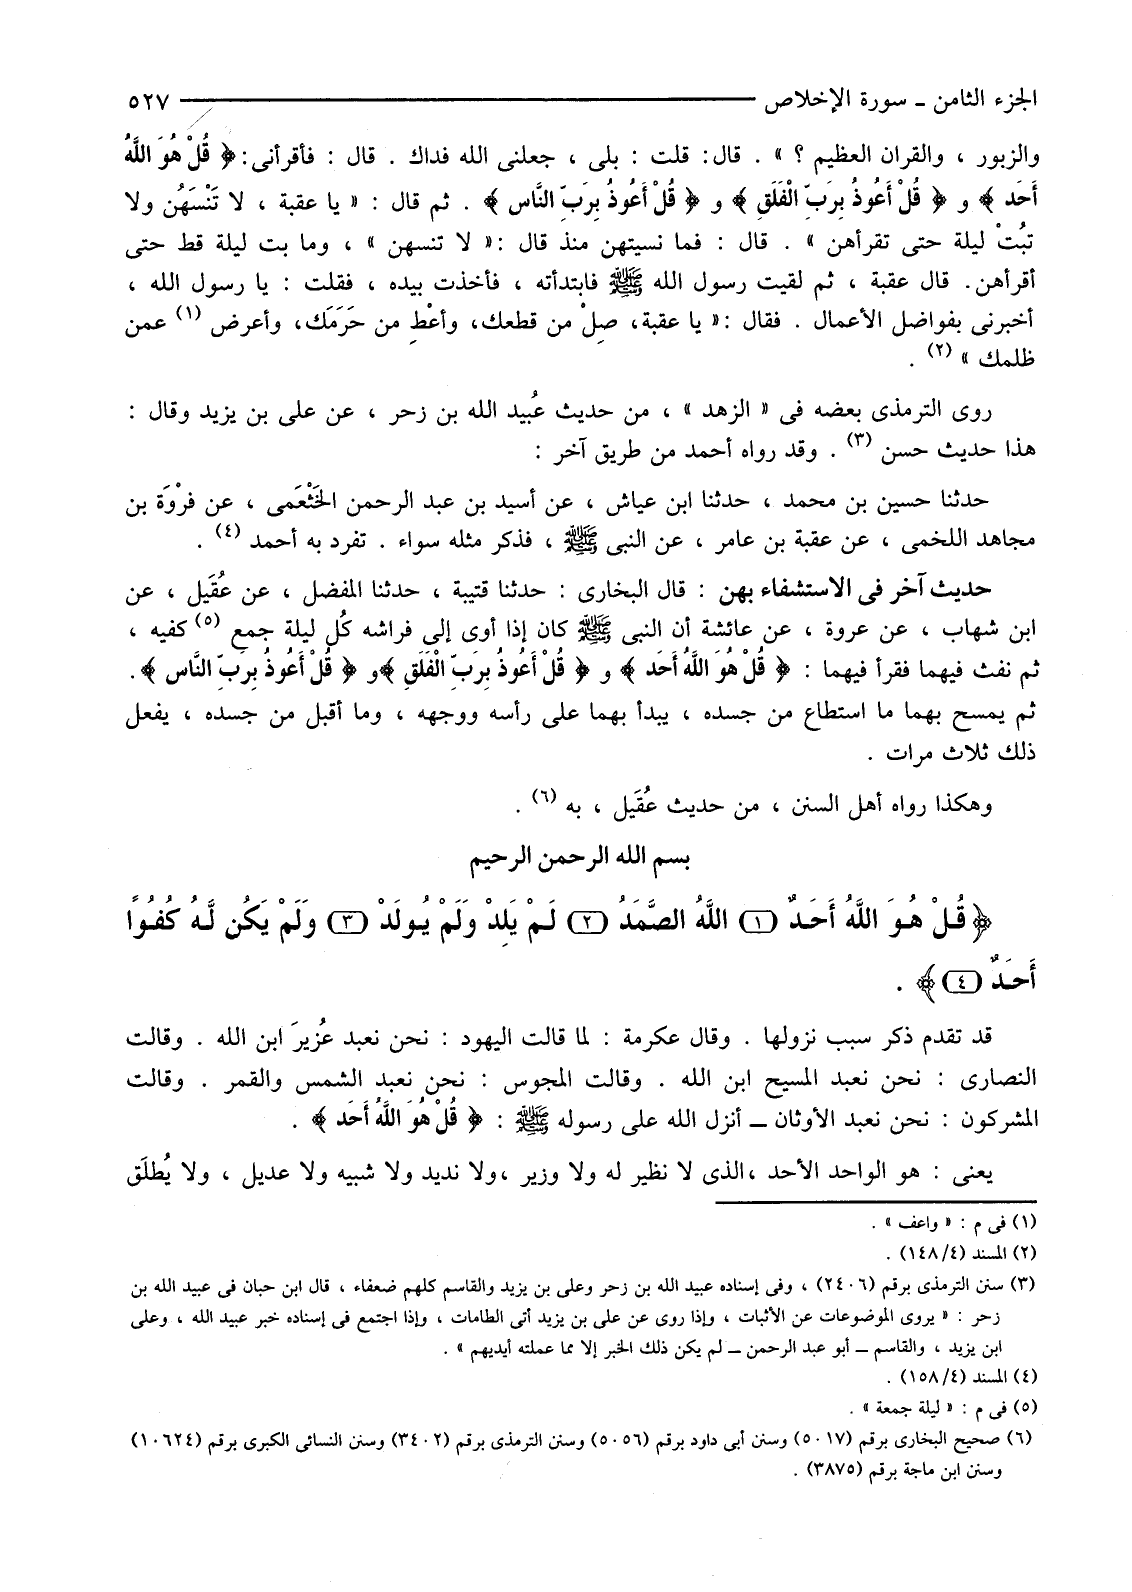 الجزء الثامن ـ سورة الإخلاص ٥٢٧
والزبور ، والقران العظيم ؟ » . قال: قلت : بلى ، جعلنى الله فداك . قال : فأقرأنى: ﴿ قُلْ هُوَ اللَّهُ
أَحَد ﴾ و ﴿ قُلْ أَعُوذُ بِرَبِّ الْفَلَقِ ﴾ و ﴿ قُلْ أَعُوذُ بِرَبِّ النَّاس ﴾ . ثم قال : « يا عقبة ، لا تَنْسَهُن ولا
تبُتْ ليلة حتى تقرأهن » . قال : فما نسيتهن منذ قال :« لا تنسهن » ، وما بت ليلة قط حتى
أقرأهن. قال عقبة ، ثم لقيت رسول الله ﷺ فابتدأته ، فأخذت بيده ، فقلت : يا رسول الله ،
أخبرنى بفواضل الأعمال . فقال :« يا عقبة، صِلْ من قطعك، وأعْطِ من حَرَمَك، وأعرض (١) عمن
ظلمك » (٢) .
روى الترمذى بعضه فى « الزهد » ، من حديث عُبيد الله بن زحر ، عن على بن يزيد وقال :
هذا حديث حسن (٣) . وقد رواه أحمد من طريق آخر :
حدثنا حسين بن محمد ، حدثنا ابن عياش ، عن أسيد بن عبد الرحمن الخَثْعَمى ، عن فرْوَة بن
مجاهد اللخمى ، عن عقبة بن عامر ، عن النبى ﷺ ، فذكر مثله سواء . تفرد به أحمد (٤) .
حديث آخر فى الاستشفاء بهن : قال البخارى : حدثنا قتيبة ، حدثنا المفضل ، عن عُقَيل ، عن
ابن شهاب ، عن عروة ، عن عائشة أن النبى ﷺ كان إذا أوى إلى فراشه كُل ليلة جمع (٥) كفيه ،
ثم نفث فيهما فقرأ فيهما : ﴿ قُلْ هُوَ اللَّهُ أَحَد ﴾ و ﴿ قُلْ أَعُوذُ بِرَبِّ الْفَلَقِ ﴾و ﴿ قُلْ أَعُوذُ بِرَبِّ النَّاس ﴾.
ثم يمسح بهما ما استطاع من جسده ، يبدأ بهما على رأسه ووجهه ، وما أقبل من جسده ، يفعل
ذلك ثلاث مرات .
وهكذا رواه أهل السنن ، من حديث عُقَيل ، به (٦) .
بسم الله الرحمن الرحيم
﴿ قُلْ هُوَ اللَّهُ أَحَدٌ (١) اللَّهُ الصَّمَدُ (٢) لَمْ يَلِدْ وَلَمْ يُولَدْ (٣) وَلَمْ يَكُن لَّهُ كُفُوًا
أَحَدٌ (٤) ﴾ .
قد تقدم ذكر سبب نزولها . وقال عكرمة : لما قالت اليهود : نحن نعبد عُزيرَ ابن الله . وقالت
النصارى : نحن نعبد المسيح ابن الله . وقالت المجوس : نحن نعبد الشمس والقمر . وقالت
المشركون : نحن نعبد الأوثان ـ أنزل الله على رسوله ﷺ : ﴿ قُلْ هُوَ اللَّهُ أَحَد ﴾ .
يعنى : هو الواحد الأحد ،الذى لا نظير له ولا وزير ،ولا نديد ولا شبيه ولا عديل ، ولا يُطلَق
(١) فى م : « واعف » .
(٢) المسند (١٤٨/٤) .
(٣) سنن الترمذى برقم (٢٤٠٦) ، وفى إسناده عبيد الله بن زحر وعلى بن يزيد والقاسم كلهم ضعفاء ، قال ابن حبان فى عبيد الله بن
زحر : « يروى الموضوعات عن الأثبات ، وإذا روى عن على بن يزيد أتى الطامات ، وإذا اجتمع فى إسناده خبر عبيد الله ، وعلى
ابن يزيد ، والقاسم ـ أبو عبد الرحمن ـ لم يكن ذلك الخبر إلا مما عملته أيديهم » .
(٤) المسند (١٥٨/٤) .
(٥) فى م : « ليلة جمعة » .
(٦) صحيح البخارى برقم (٥٠١٧) وسنن أبى داود برقم (٥٠٥٦) وسنن الترمذى برقم (٣٤٠٢) وسنن النسائى الكبرى برقم (١٠٦٢٤)
وسنن ابن ماجة برقم (٣٨٧٥) .